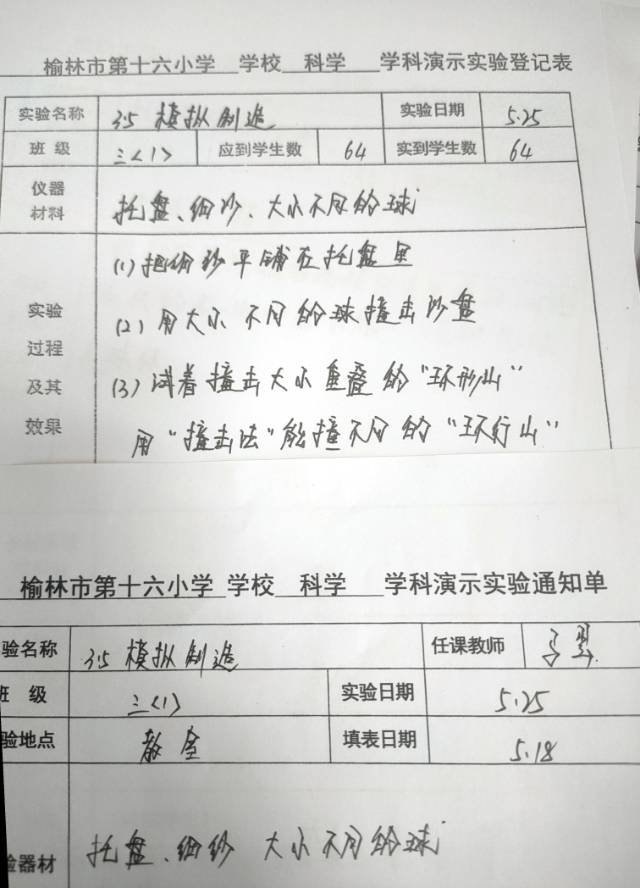 榆林市第十六小学 学校 科学 学科演示实验登记表
实验名称 3.5 模拟制造 实验日期 5.25
班 级 三<1> 应到学生数 64 实到学生数 64
仪器
材料
托盘、细沙、大小不同的球
实验
过程
及其
效果
(1)把细沙平铺在托盘里
(2)用大小不同的球撞击沙盘
(3)试着撞击大小重叠的“环形山”
用“撞击法”能撞不同的“环行山”
榆林市第十六小学 学校 科学 学科演示实验通知单
验名称 3.5 模拟制造 任课教师
班 级 三<1> 实验日期 5.25
验地点 教室 填表日期 5.18
验器材 托盘、细纱 大小不同的球